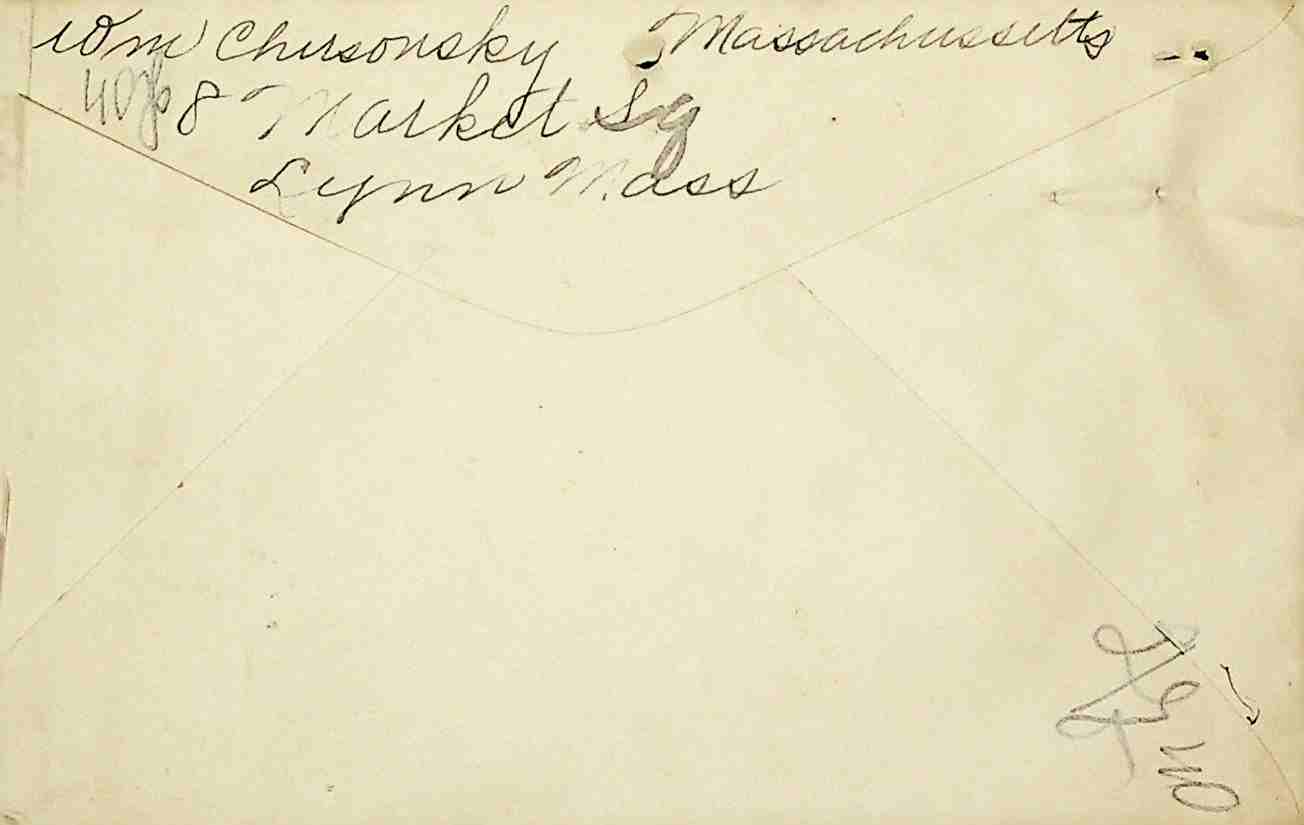 Wm Chersonsky Massachussetts
8 Market Sq
Lynn Mass